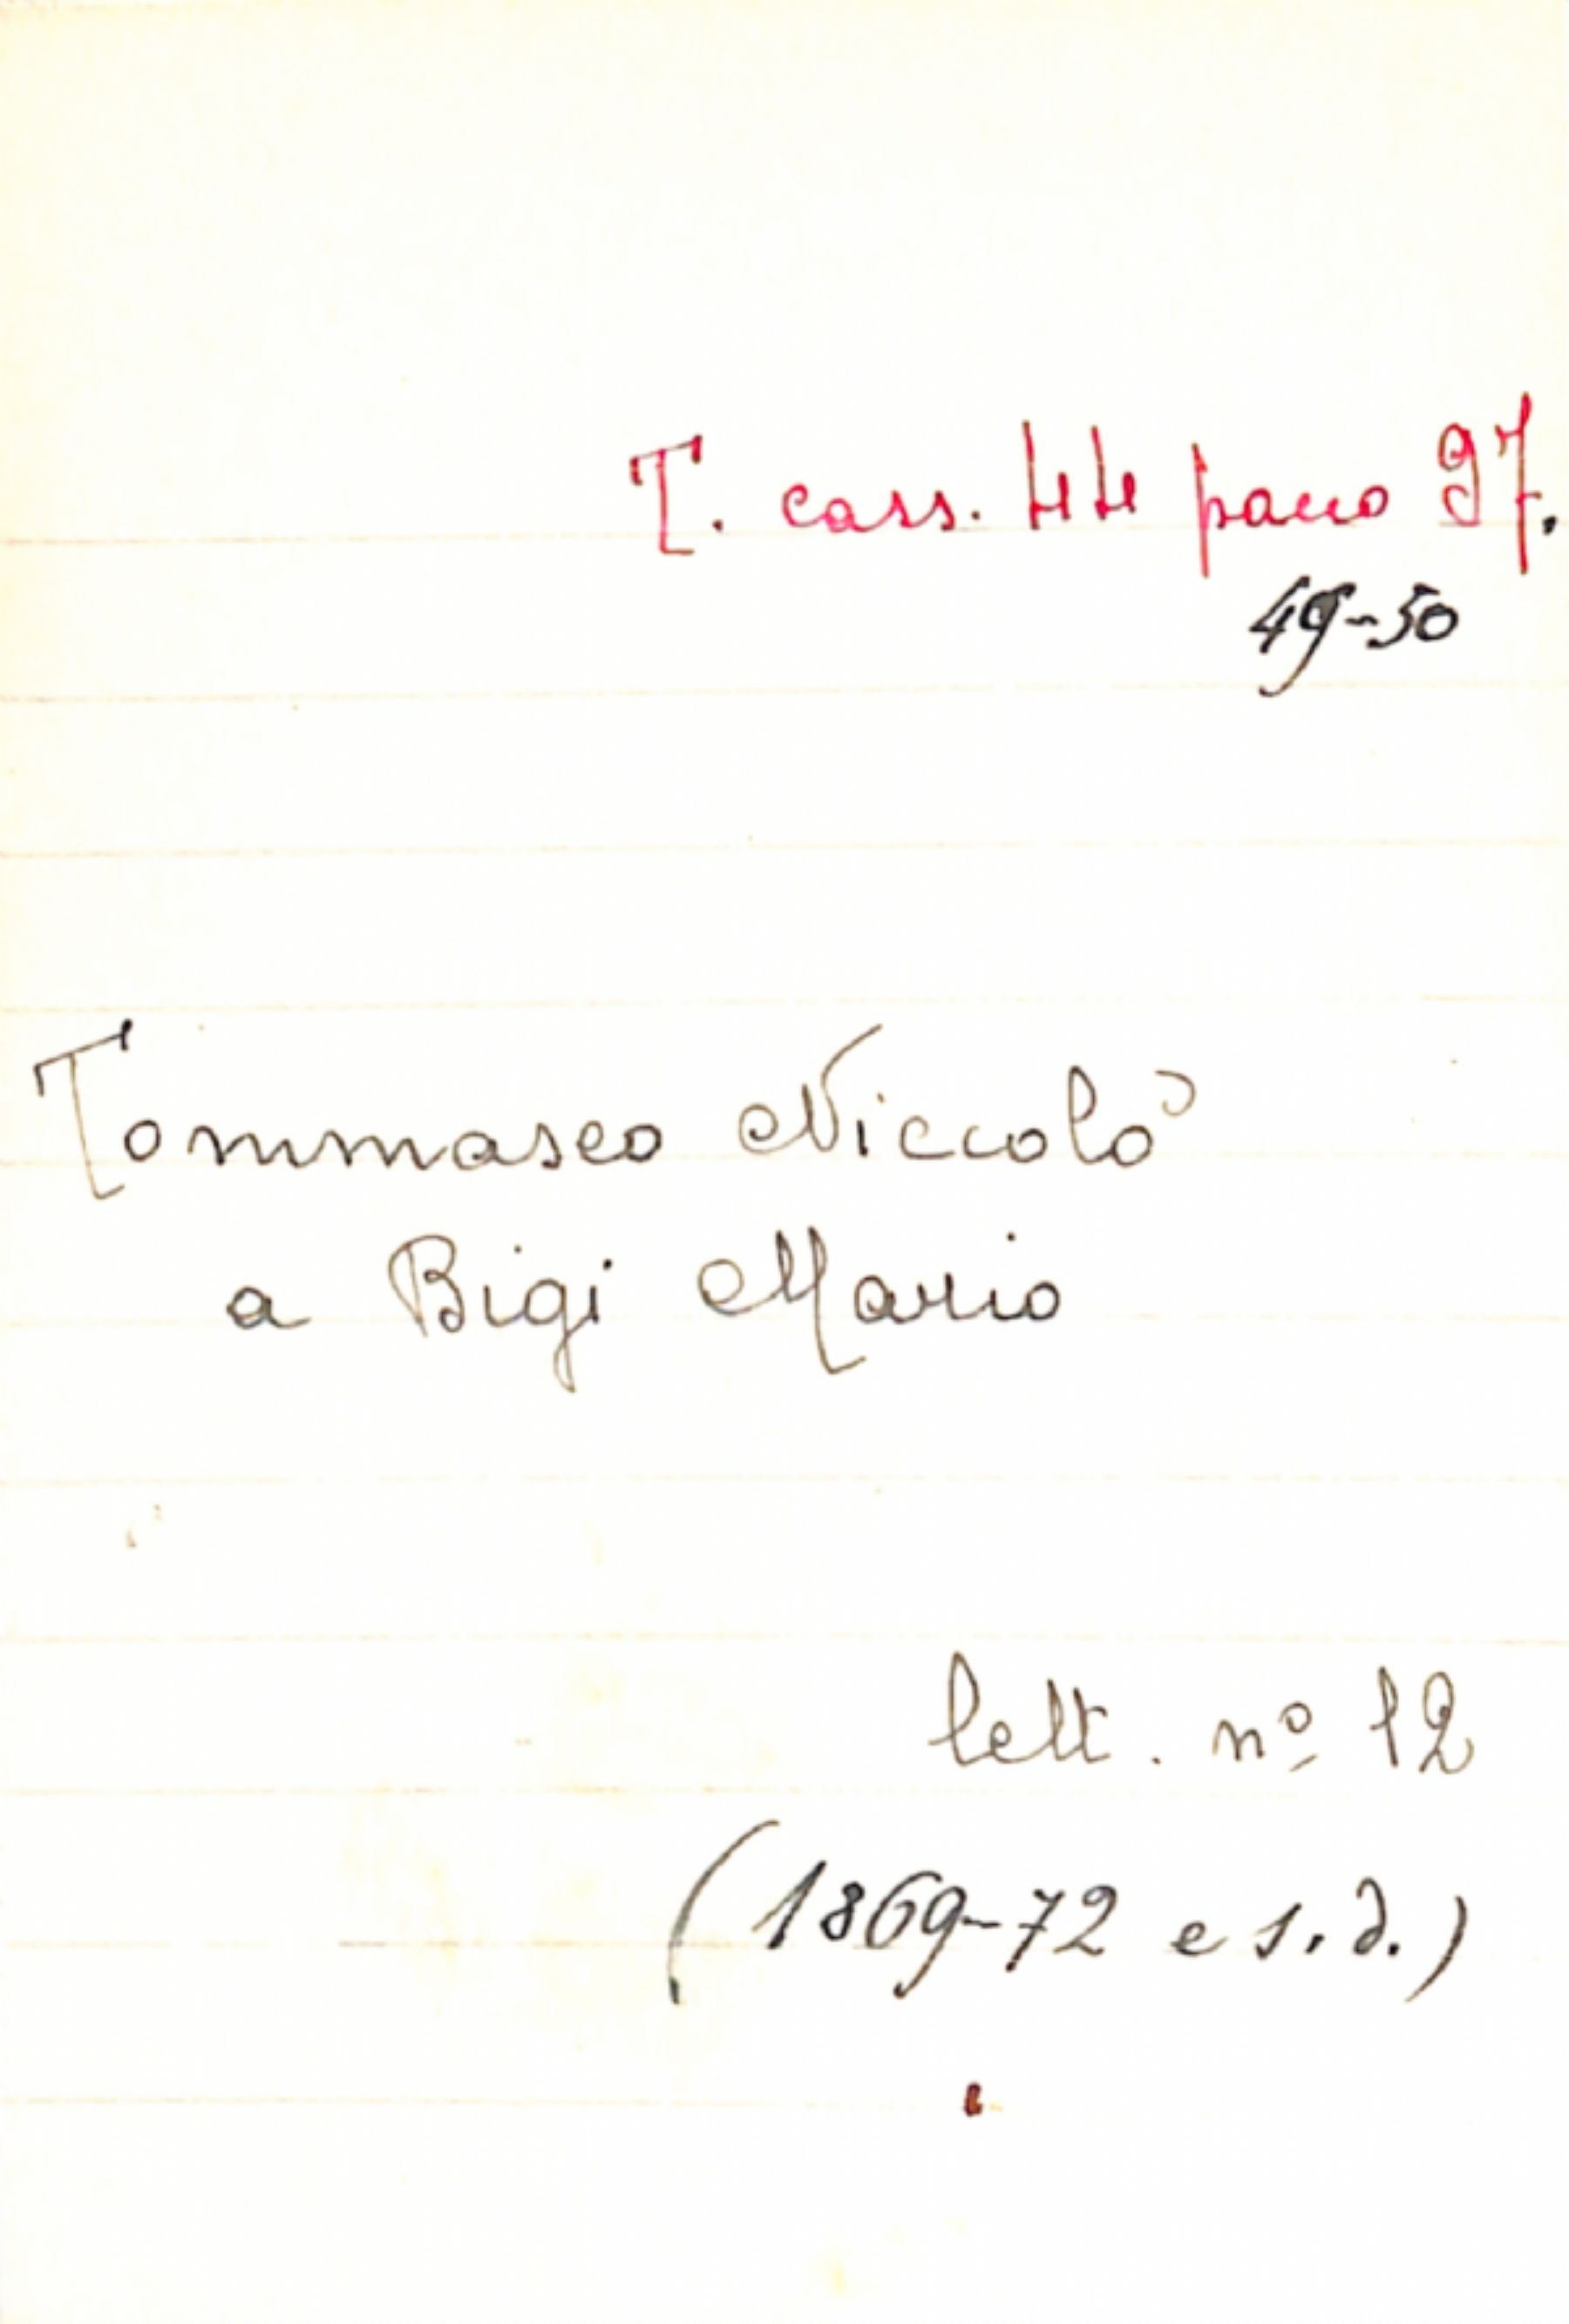 T. cass. 44 pacco 97.
49-50
Tommaseo Niccolò
a Bigi Mario
lett. nº 12
(1869-72 e s.d.)